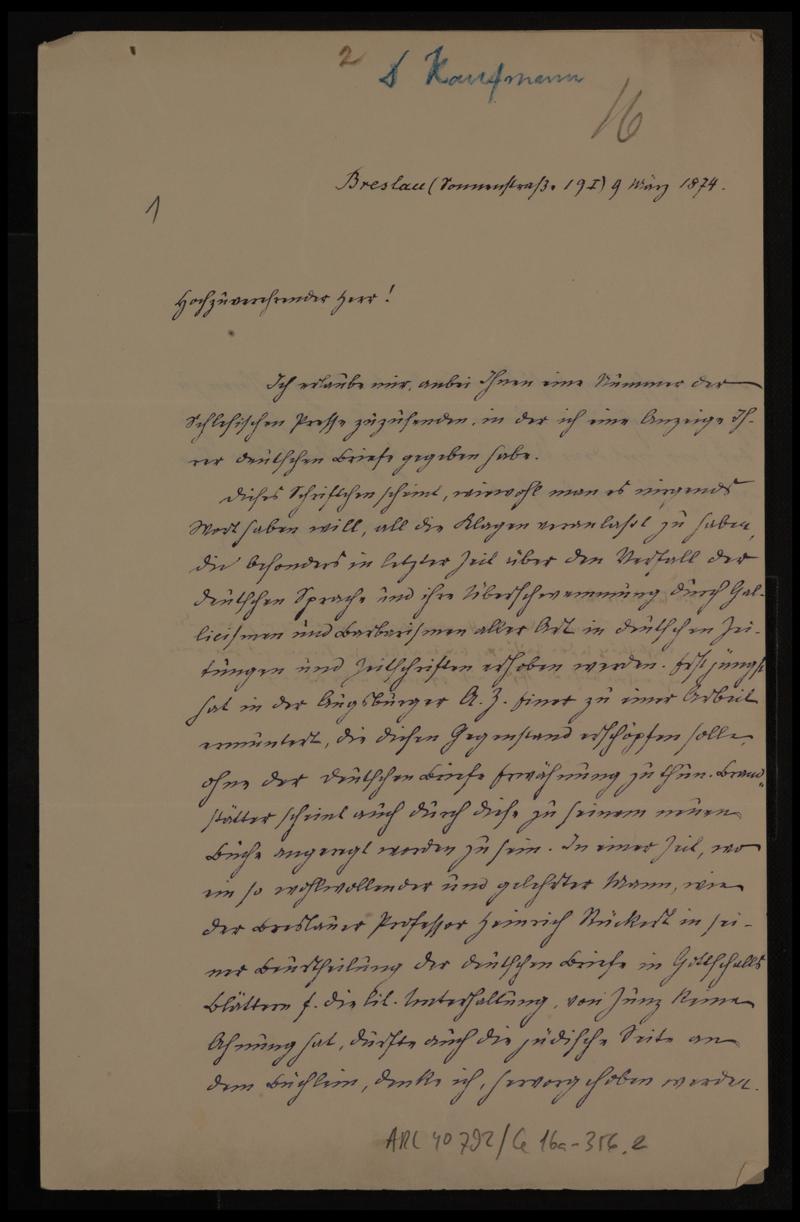 2
D Kaufmann
16
Breslau (Sonnenstraße 19 I) 9 März 1874.
1
Hochzuverehrender Herr!
Ich erlaube mir, anbei Ihnen eine Nummer der
Schlesischen Presse zuzusenden, in der ich eine Anzeige Ih-
rer deutschen Briefe gegeben habe.
Dieses Schriftchen scheint, wiewohl man es nirgends
Wort haben will, all die Klagen veranlaßt zu haben,
die besonders in letzter Zeit über den Verfall der
deutschen Sprache und ihre Überschwemmung durch Gal-
licismen und Barbarismen aller Art in deutschen Zei-
tungen und Zeitschriften erhoben werden. Erst jüngst
hat in der Augsburger A. Z. Einer zu einer Arbeit
ermuntert, die diesen Gegenstand erschöpfen solle,
ohne der deutschen Briefe Erwähnung zu thun. Brand-
stätter scheint auch durch diese zu seinem neuen
Buche angeregt worden zu sein. In einer Zeit, wo
ein so wohlwollender und gelehrter Mann, wie
der Breslauer Professor Heinrich Rückert in sei-
ner Beurtheilung der deutschen Briefe in Gottschalls
Blättern f. die lit. Unterhaltung, von Zunz keine
Ahnung hat, dürfte auch die jüdische Seite an
dem Büchlein, denke ich, hervorgehoben werden.
ARC 4° 792/G 16a-356.2